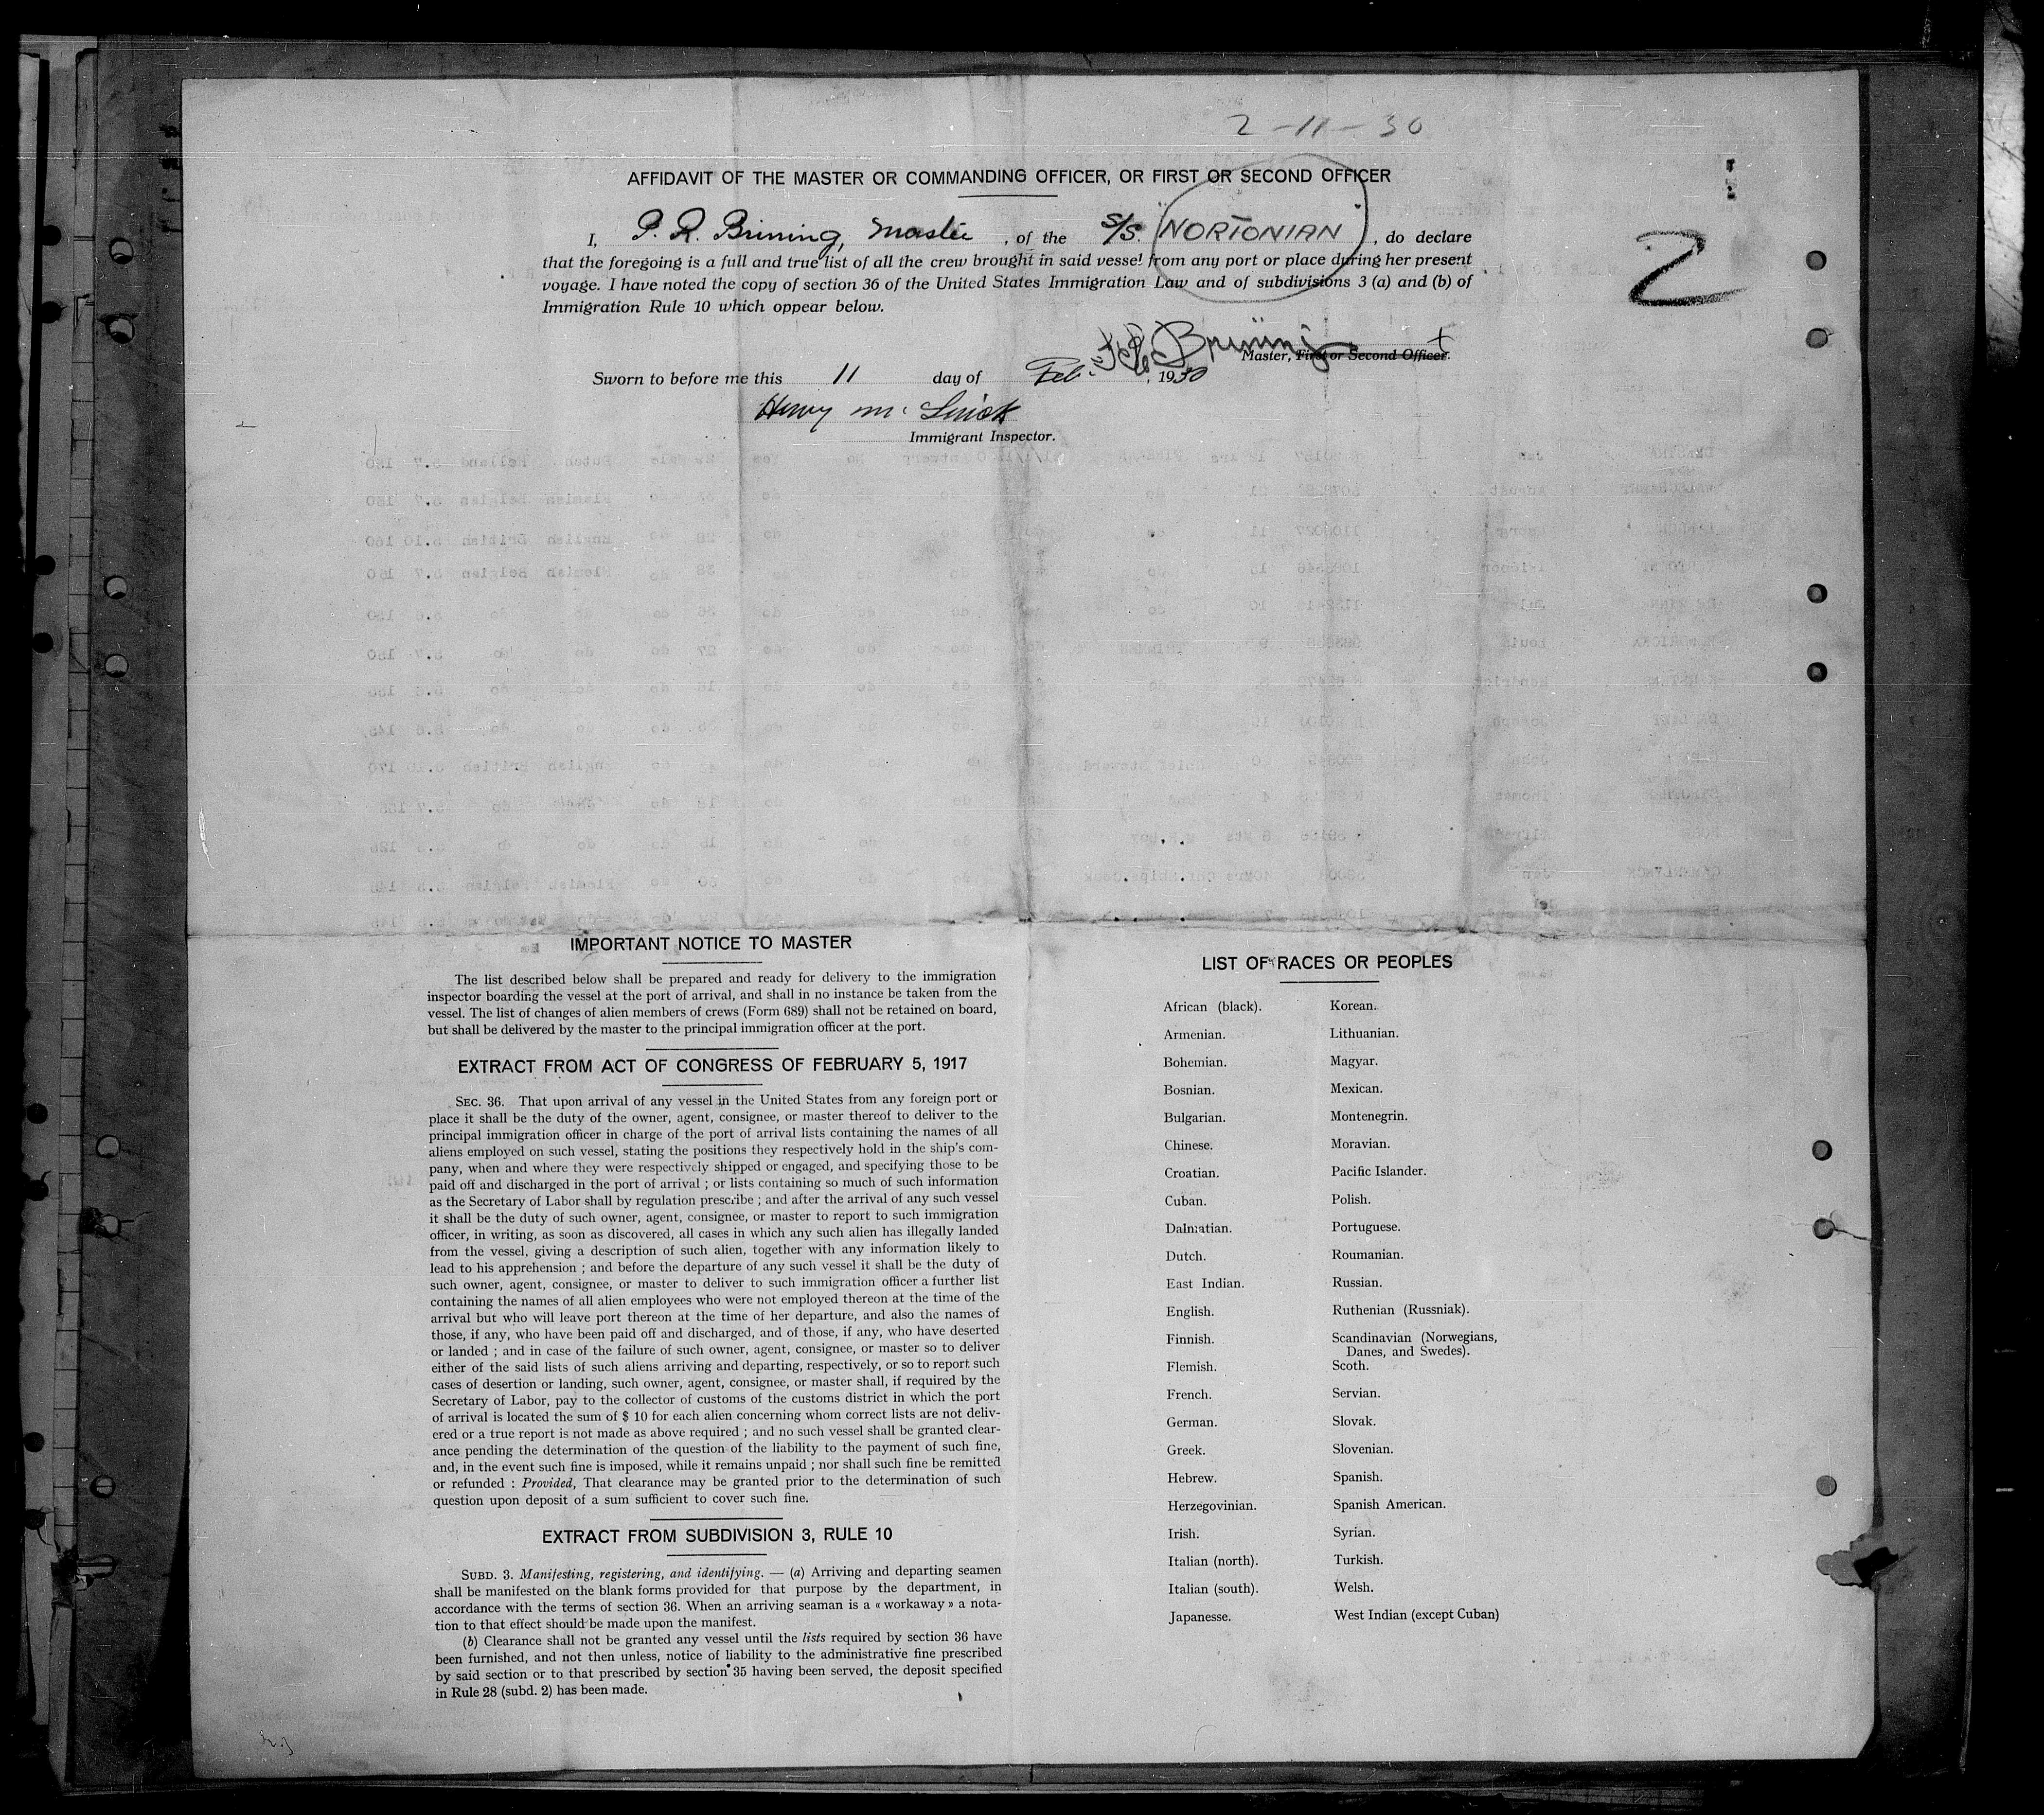 2-11-30
AFFIDAVIT OF THE MASTER OR COMMANDING OFFICER, OR FIRST OR SECOND OFFICER
I, P. R. Brüning, Master, of the S/S. "NORTONIAN", do declare
that the foregoing is a full and true list of all the crew brought in said vessel from any port or place during her present
voyage. I have noted the copy of section 36 of the United States Immigration Law and of subdivisions 3 (a) and (b) of
Immigration Rule 10 which oppear below.
2
Brüning
Master, First or Second Officer.
Sworn to before me this 11 day of Feb. , 1930
Henry M.
Immigrant Inspector.
IMPORTANT NOTICE TO MASTER
The list described below shall be prepared and ready for delivery to the immigration
inspector boarding the vessel at the port of arrival, and shall in no instance be taken from the
vessel. The list of changes of alien members of crews (Form 689) shall not be retained on board,
but shall be delivered by the master to the principal immigration officer at the port.
EXTRACT FROM ACT OF CONGRESS OF FEBRUARY 5, 1917
SEC. 36. That upon arrival of any vessel in the United States from any foreign port or
place it shall be the duty of the owner, agent, consignee, or master thereof to deliver to the
principal immigration officer in charge of the port of arrival lists containing the names of all
aliens employed on such vessel, stating the positions they respectively hold in the ship's com-
pany, when and where they were respectively shipped or engaged, and specifying those to be
paid off and discharged in the port of arrival ; or lists containing so much of such information
as the Secretary of Labor shall by regulation prescribe ; and after the arrival of any such vessel
it shall be the duty of such owner, agent, consignee, or master to report to such immigration
officer, in writing, as soon as discovered, all cases in which any such alien has illegally landed
from the vessel, giving a description of such alien, together with any information likely to
lead to his apprehension ; and before the departure of any such vessel it shall be the duty of
such owner, agent, consignee, or master to deliver to such immigration officer a further list
containing the names of all alien employees who were not employed thereon at the time of the
arrival but who will leave port thereon at the time of her departure, and also the names of
those, if any, who have been paid off and discharged, and of those, if any, who have deserted
or landed ; and in case of the failure of such owner, agent, consignee, or master so to deliver
either of the said lists of such aliens arriving and departing, respectively, or so to report such
cases of desertion or landing, such owner, agent, consignee, or master shall, if required by the
Secretary of Labor, pay to the collector of customs of the customs district in which the port
of arrival is located the sum of $ 10 for each alien concerning whom correct lists are not deliv-
ered or a true report is not made as above required ; and no such vessel shall be granted clear-
ance pending the determination of the question of the liability to the payment of such fine,
and, in the event such fine is imposed, while it remains unpaid ; nor shall such fine be remitted
or refunded : Provided, That clearance may be granted prior to the determination of such
question upon deposit of a sum sufficient to cover such fine.
EXTRACT FROM SUBDIVISION 3, RULE 10
SUBD. 3. Manifesting, registering, and identifying. — (a) Arriving and departing seamen
shall be manifested on the blank forms provided for that purpose by the department, in
accordance with the terms of section 36. When an arriving seaman is a « workaway » a nota-
tion to that effect should be made upon the manifest.
(b) Clearance shall not be granted any vessel until the lists required by section 36 have
been furnished, and not then unless, notice of liability to the administrative fine prescribed
by said section or to that prescribed by section 35 having been served, the deposit specified
in Rule 28 (subd. 2) has been made.
LIST OF RACES OR PEOPLES
African (black).
Armenian.
Bohemian.
Bosnian.
Bulgarian.
Chinese.
Croatian.
Cuban.
Dalmatian.
Dutch.
East Indian.
English.
Finnish.
Flemish.
French.
German.
Greek.
Hebrew.
Herzegovinian.
Irish.
Italian (north).
Italian (south).
Japanesse.
Korean.
Lithuanian.
Magyar.
Mexican.
Montenegrin.
Moravian.
Pacific Islander.
Polish.
Portuguese.
Roumanian.
Russian.
Ruthenian (Russniak).
Scandinavian (Norwegians,
Danes, and Swedes).
Scoth.
Servian.
Slovak.
Slovenian.
Spanish.
Spanish American.
Syrian.
Turkish.
Welsh.
West Indian (except Cuban)